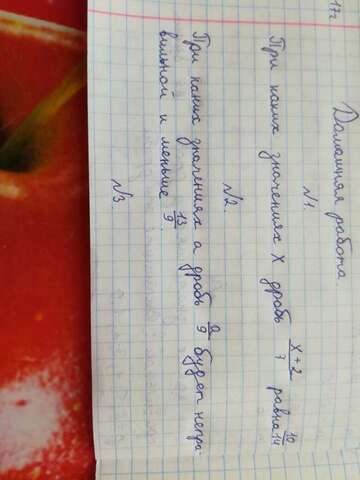 17г
Домашняя работа.
№1.
При каких значениях X дробь (x+2)/7 равна 10/14
№2.
При каких значениях а дробь a/9 будет непра-
вильной и меньше 13/9.
№3.